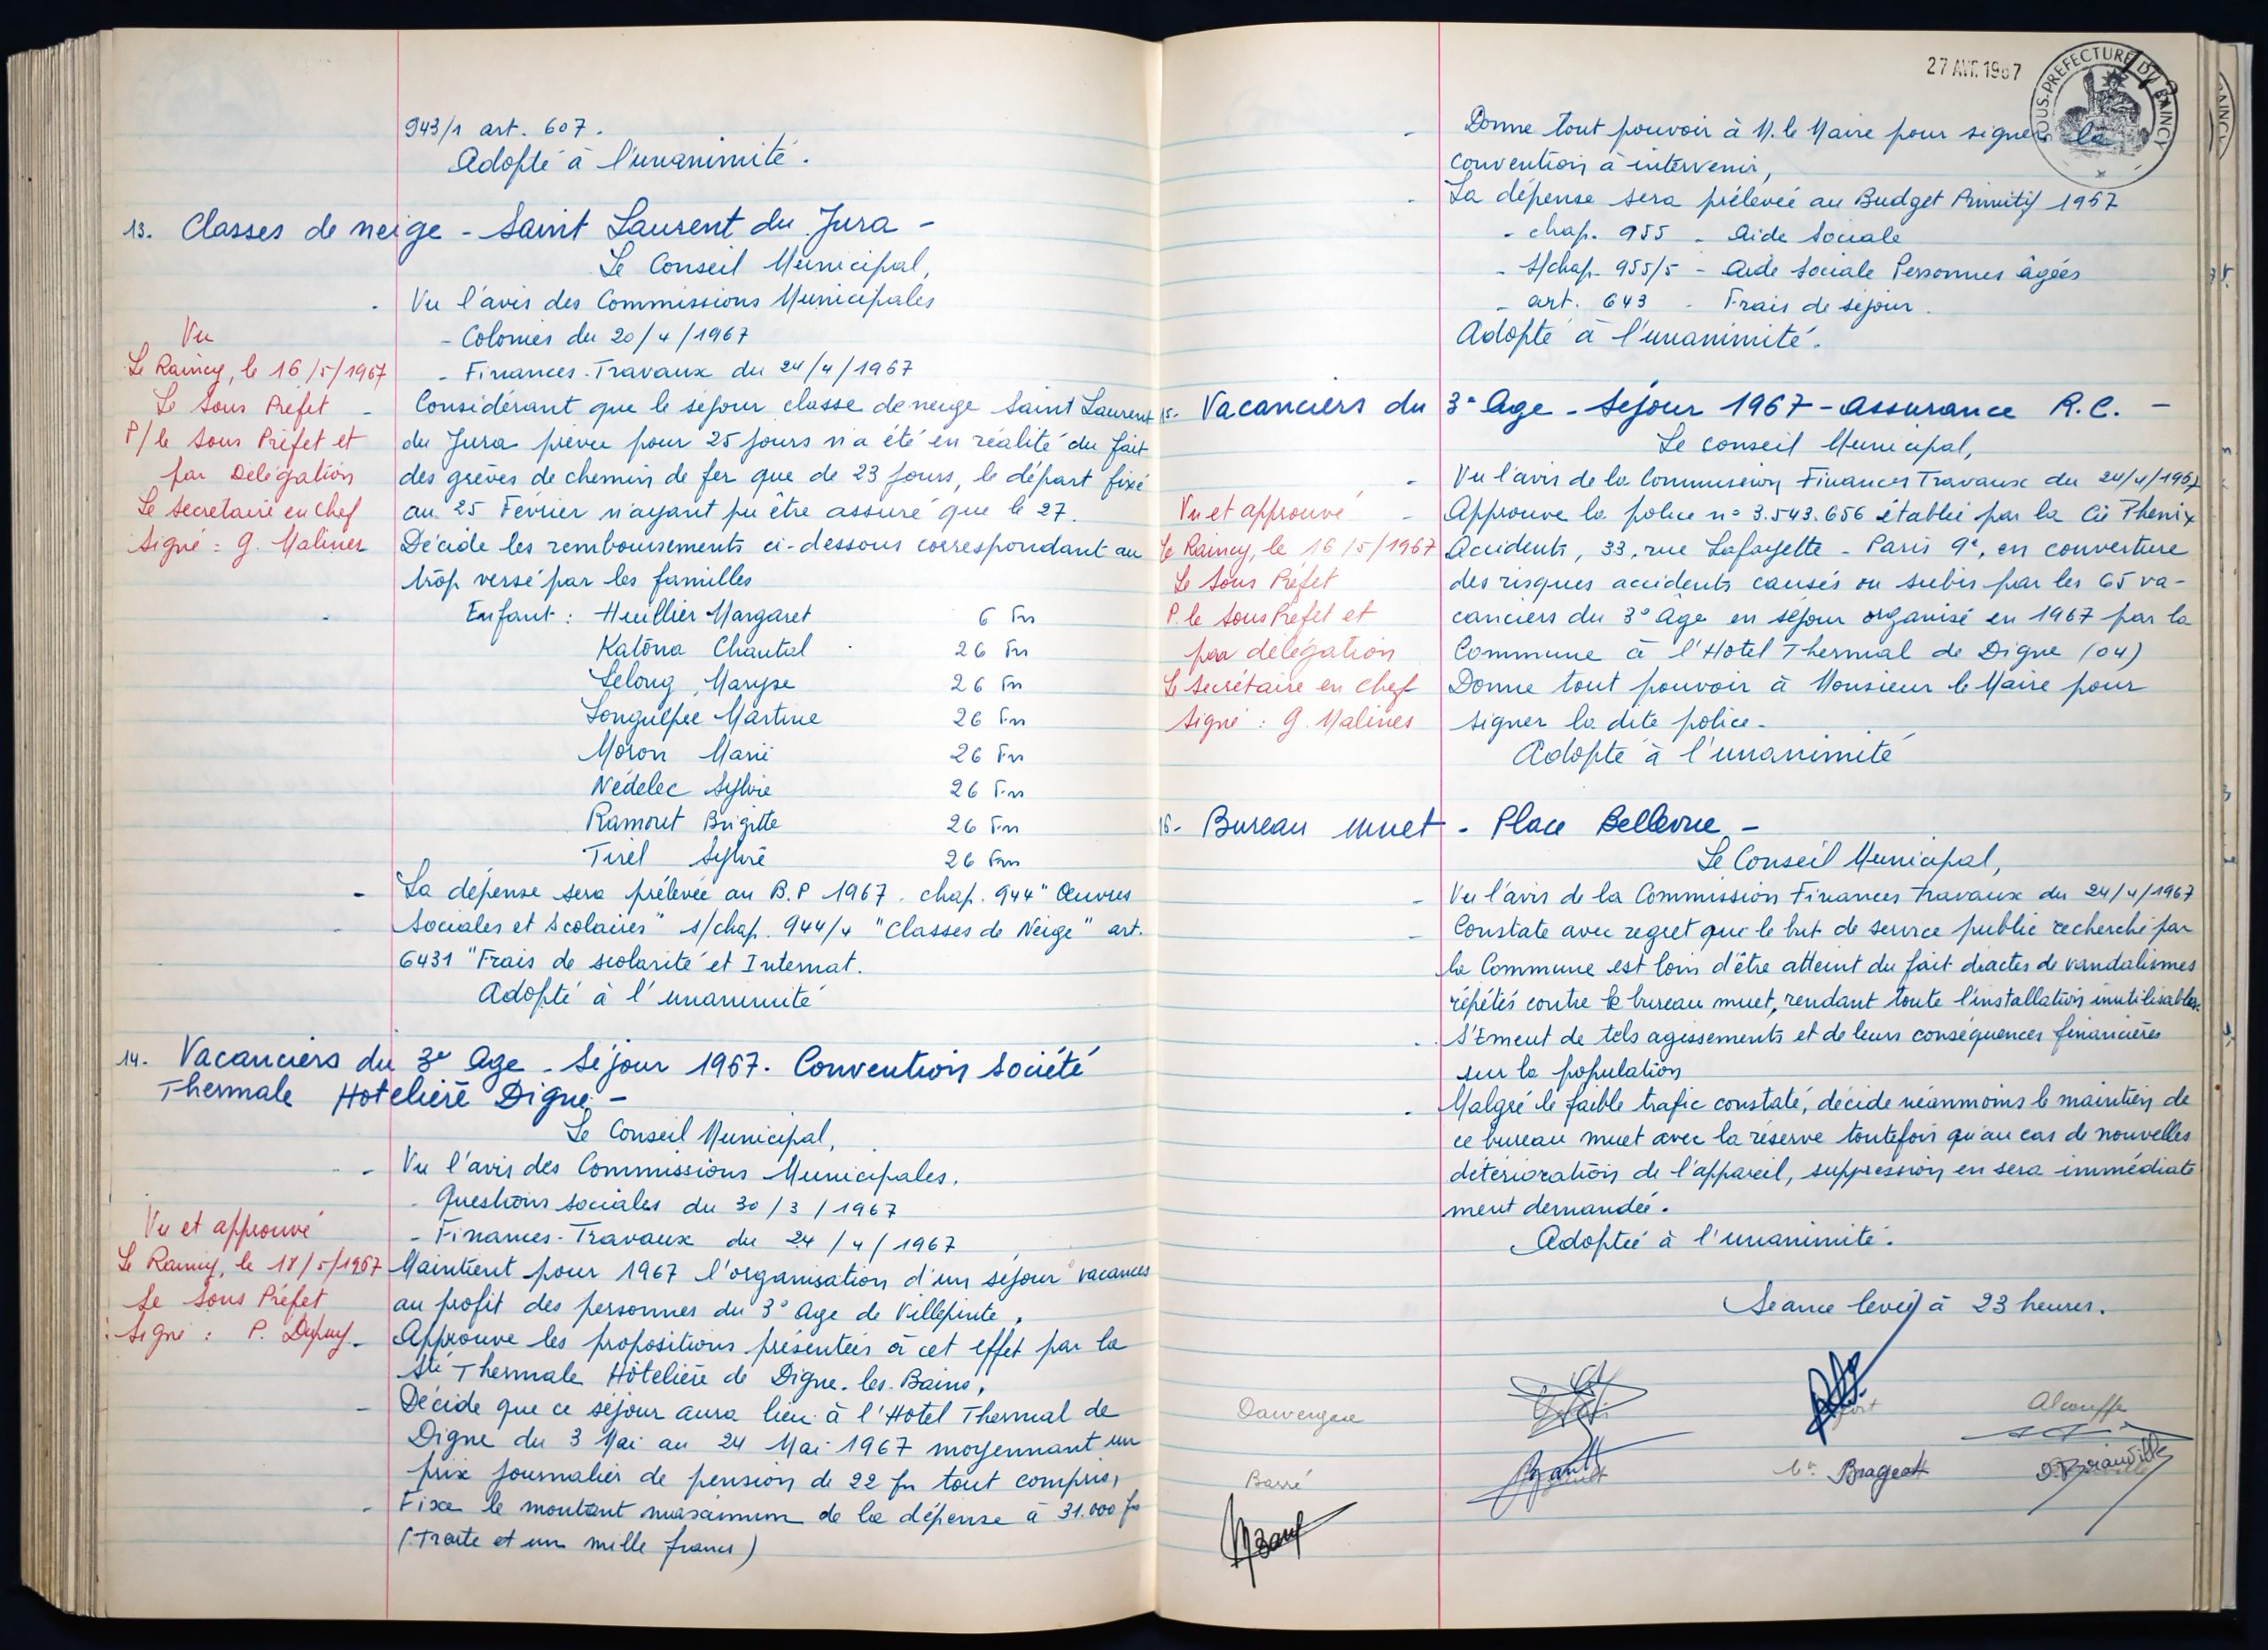 943/1 art. 607.
Adopté à l'unanimité.
13. Classes de neige - Saint Laurent du Jura -
Le Conseil Municipal,
Vu l'avis des Commissions Municipales
- Colonies du 20/4/1967
- Finances-Travaux du 24/4/1967
Considérant que le séjour classe de neige Saint Laurent
du Jura prévu pour 25 jours n'a été en réalité du fait
des grèves de chemin de fer que de 23 jours, le départ fixé
au 25 Février n'ayant pu être assuré que le 27.
Décide les remboursements ci-dessous correspondant au
trop versé par les familles
Enfant : Huillier Margaret 6 Frs
Katona Chantal 26 Frs
Lelong Maryse 26 Frs
Longuépée Martine 26 Frs
Moron Marie 26 Frs
Nédelec Sylvie 26 Frs
Ramout Brigitte 26 Frs
Tirel Sylvie 26 Frs
- La dépense sera prélevée au B.P 1967 - chap. 944 "Œuvres
Sociales et Scolaires" s/chap. 944/4 "Classes de Neige" art.
6431 "Frais de scolarité et Internat.
Adopté à l'unanimité
Vu
Le Raincy, le 16/5/1967
Le Sous Préfet
P/ le Sous Préfet et
par Délégation
Le secrétaire en chef
Signé : G. Malines
14. Vacanciers du 3e Age - Séjour 1967. Convention Société
Thermale Hotelière Digne -
Le Conseil Municipal,
- Vu l'avis des Commissions Municipales.
- Questions sociales du 30/3/1967
- Finances-Travaux du 24/4/1967
Maintient pour 1967 l'organisation d'un séjour vacances
au profit des personnes du 3° Age de Villepinte,
- Approuve les propositions présentées à cet effet par la
Sté Thermale Hôtelière de Digne-les-Bains,
- Décide que ce séjour aura lieu à l'Hotel Thermal de
Digne du 3 Mai au 24 Mai 1967 moyennant un
prix journalier de pension de 22 frs tout compris,
- Fixe le montant maximum de la dépense à 31.000 frs
(Trente et un mille francs)
Vu et approuvé
Le Raincy, le 18/5/1967
Le Sous Préfet
Signé : P. Dupuy
27 AVR. 1967
SOUS-PREFECTURE DU RAINCY
- Donne tout pouvoir à M. le Maire pour signer la
convention à intervenir,
- La dépense sera prélevée au Budget Primitif 1967
- chap. 955 - Aide Sociale
- S/chap. 955/5 - Aide Sociale Personnes âgées
- art. 643 - Frais de séjour.
Adopté à l'unanimité.
15- Vacanciers du 3e Age - Séjour 1967 - Assurance R.C. -
Le Conseil Municipal,
- Vu l'avis de la Commission Finances Travaux du 24/4/1967
- Approuve la police n° 3.543.656 établie par la Cie Phenix
Accidents, 33, rue Lafayette - Paris 9e, en couverture
des risques accidents causés ou subis par les 65 va-
canciers du 3° Age en séjour organisé en 1967 par la
Commune à l'Hotel Thermal de Digne (04)
Donne tout pouvoir à Monsieur le Maire pour
signer la dite police.
Adopté à l'unanimité
Vu et approuvé
Le Raincy, le 16/5/1967
Le Sous Préfet
P. le Sous Préfet et
par délégation
Le Secrétaire en Chef
Signé : G. Malines
16- Bureau muet - Place Bellevue -
Le Conseil Municipal,
- Vu l'avis de la Commission Finances Travaux du 24/4/1967
- Constate avec regret que le but de service public recherché par
la Commune est loin d'être atteint du fait d'actes de vandalismes
répétés contre le bureau muet, rendant toute l'installation inutilisables.
- S'Emeut de tels agissements et de leurs conséquences financières
sur la population
- Malgré le faible trafic constaté, décide néanmoins le maintien de
ce bureau muet avec la réserve toutefois qu'au cas de nouvelles
détérioration de l'appareil, suppression en sera immédiate
ment demandée.
Adoptée à l'unanimité.
Séance levée à 23 heures.
Dauvergne
Barré
Brageot